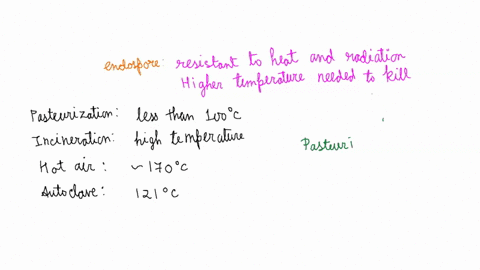 endospore: resistant to heat and radiation
Higher temperature needed to kill
Pasteurization: less than 100°c
Incineration: high temperature
Hot air: ~170°c
Autoclave: 121°c
Pasteuri